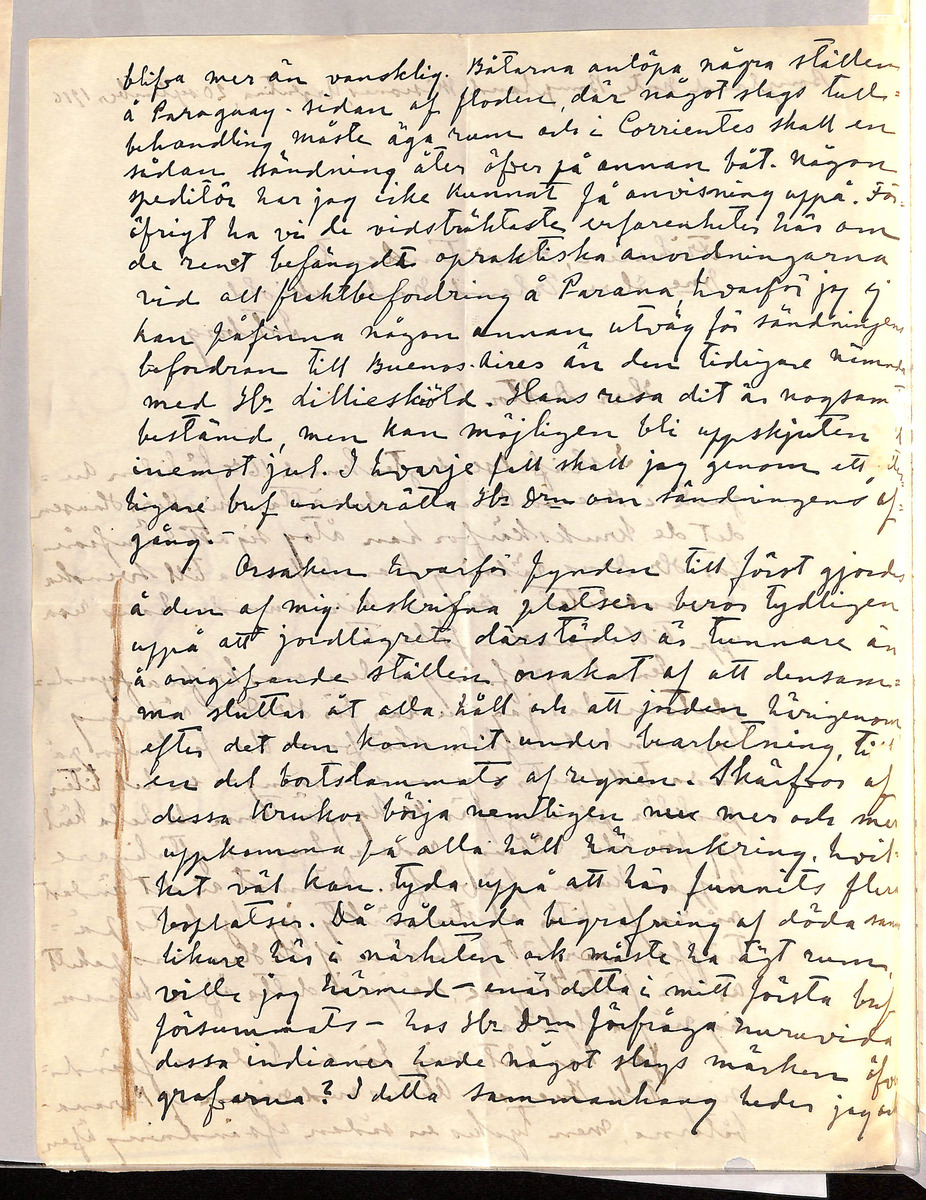 blifva mer än vansklig. Båtarna anlöpa några ställen
å Paraguay-sidan af floden, där något slags tull-
behandling måste äga rum och i Corrientes skall en
sådan sändning åter öfver på annan båt. Någon
speditör har jag icke kunnat få anvisning uppå. För-
öfrigt ha vi de vidsträktaste erfarenheter här om
de rent befängdt opraktiska anordningarna
vid all fraktbefordring å Parana, hvarför jag ej
kan påfinna någon annan utväg för sändningens
befordran till Buenos-Aires än den tidigare nämnda
med Hr Lillieskiöld. Hans resa dit är nogsamt
bestämd, men kan möjligen bli uppskjuten
inemot jul. I hvarje fall skall jag genom ett
ligare bref underrätta Hr Drn om sändningens af-
gång. –
Orsaken hvarför fynden till först gjordes
å den af mig beskrifna platsen beror tydligen
uppå att jordlagret därstädes är tunnare än
å omgifvande ställen orsakat af att densam-
ma sluttar åt alla håll och att jorden härigenom
efter det den kommit under bearbetning, till
en del bortslammats af regnen. Skärfvor af
dessa krukor börja nemligen nu mer och mer
uppkomma på alla håll häromkring, hvil-
ket väl kan tyda uppå att här funnits flera
boplatser. Då sålunda begrafning af döda sanno
likare här i närheten ock måste ha ägt rum,
ville jag härmed – enär detta i mitt första bref
försummats – hos Hr Drn förfråga huruvida
dessa indianer hade något slags märken öfver
grafvarna? I detta sammanhang beder jag